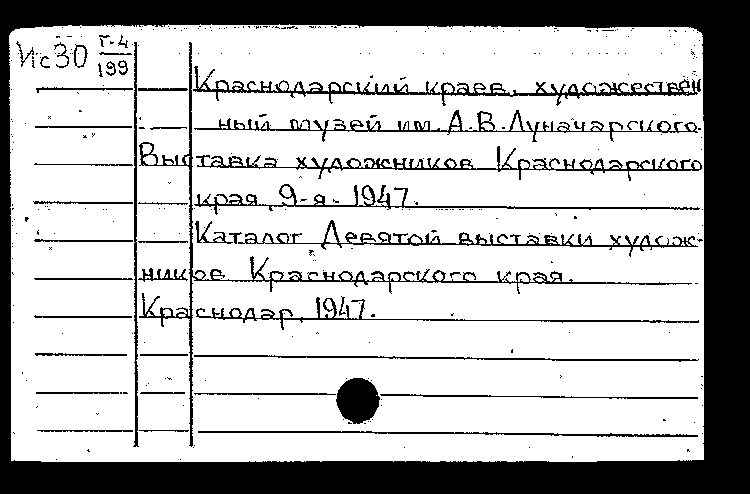 Ис30 Г-4
199
Краснодарский краев. художествен
ный музей им. А.В.Луначарского.
Выставка художников Краснодарского
края, 9-я - 1947.
Каталог Девятой выставки худож-
ников Краснодарского края.
Краснодар, 1947.